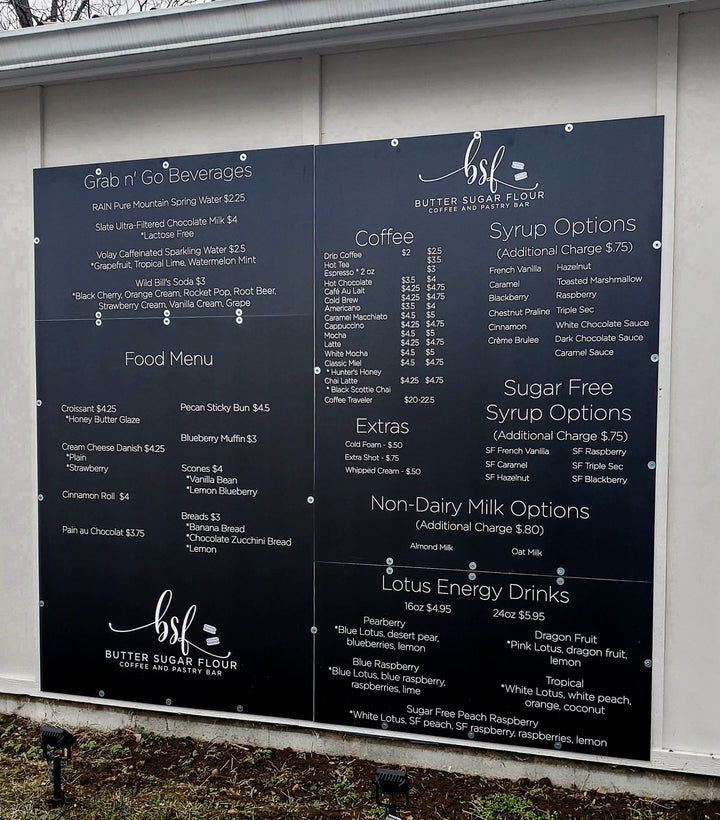 Grab n' Go Beverages
RAIN Pure Mountain Spring Water $2.25
Slate Ultra-Filtered Chocolate Milk $4
*Lactose Free
Volay Caffeinated Sparkling Water $2.5
*Grapefruit, Tropical Lime, Watermelon Mint
Wild Bill's Soda $3
*Black Cherry, Orange Cream, Rocket Pop, Root Beer,
Strawberry Cream, Vanilla Cream, Grape
Food Menu
Croissant $4.25
*Honey Butter Glaze
Cream Cheese Danish $4.25
*Plain
*Strawberry
Cinnamon Roll $4
Pain au Chocolat $3.75
Pecan Sticky Bun $4.5
Blueberry Muffin $3
Scones $4
*Vanilla Bean
*Lemon Blueberry
Breads $3
*Banana Bread
*Chocolate Zucchini Bread
*Lemon
bsf
BUTTER SUGAR FLOUR
COFFEE AND PASTRY BAR
bsf
BUTTER SUGAR FLOUR
COFFEE AND PASTRY BAR
Coffee
Drip Coffee $2 $2.5
Hot Tea $3.5
Espresso * 2 oz $3
Hot Chocolate $3.5 $4
Café Au Lait $4.25 $4.75
Cold Brew $4.25 $4.75
Americano $3.5 $4
Caramel Macchiato $4.5 $5
Cappuccino $4.25 $4.75
Mocha $4.5 $5
Latte $4.25 $4.75
White Mocha $4.5 $5
Classic Miel $4.5 $5
* Hunter's Honey
Chai Latte $4.25 $4.75
* Black Scottie Chai
Coffee Traveler $20-22.5
Extras
Cold Foam - $.50
Extra Shot - $.75
Whipped Cream - $.50
Syrup Options
(Additional Charge $.75)
French Vanilla Hazelnut
Caramel Toasted Marshmallow
Blackberry Raspberry
Chestnut Praline Triple Sec
Cinnamon White Chocolate Sauce
Crème Brulee Dark Chocolate Sauce
Caramel Sauce
Sugar Free
Syrup Options
(Additional Charge $.75)
SF French Vanilla SF Raspberry
SF Caramel SF Triple Sec
SF Hazelnut SF Blackberry
Non-Dairy Milk Options
(Additional Charge $.80)
Almond Milk Oat Milk
Lotus Energy Drinks
16oz $4.95 24oz $5.95
Pearberry
*Blue Lotus, desert pear,
blueberries, lemon
Blue Raspberry
*Blue Lotus, blue raspberry,
raspberries, lime
Dragon Fruit
*Pink Lotus, dragon fruit,
lemon
Tropical
*White Lotus, white peach,
orange, coconut
Sugar Free Peach Raspberry
*White Lotus, SF peach, SF raspberry, raspberries, lemon